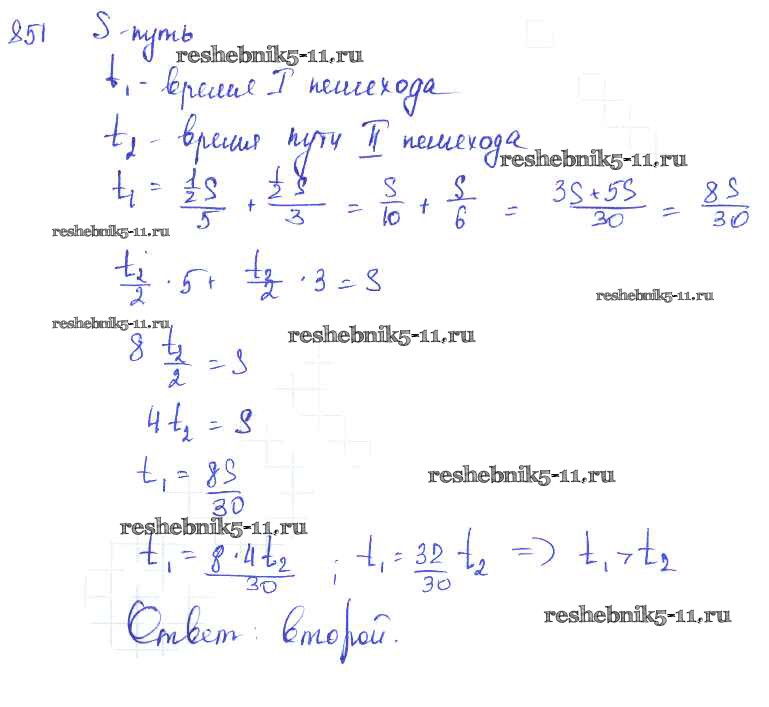 851 S - путь
reshebnik5-11.ru
t₁ - время I пешехода
t₂ - время пути II пешехода
reshebnik5-11.ru
t₁ = (1/2 S)/5 + (1/2 S)/3 = S/10 + S/6 = (3S + 5S)/30 = 8S/30
reshebnik5-11.ru
t₂/2 · 5 + t₂/2 · 3 = S
reshebnik5-11.ru
reshebnik5-11.ru
reshebnik5-11.ru
8 t₂/2 = S
4t₂ = S
t₁ = 8S/30
reshebnik5-11.ru
reshebnik5-11.ru
t₁ = (8 · 4t₂)/30 ; t₁ = 32/30 t₂ => t₁ > t₂
Ответ: второй.
reshebnik5-11.ru